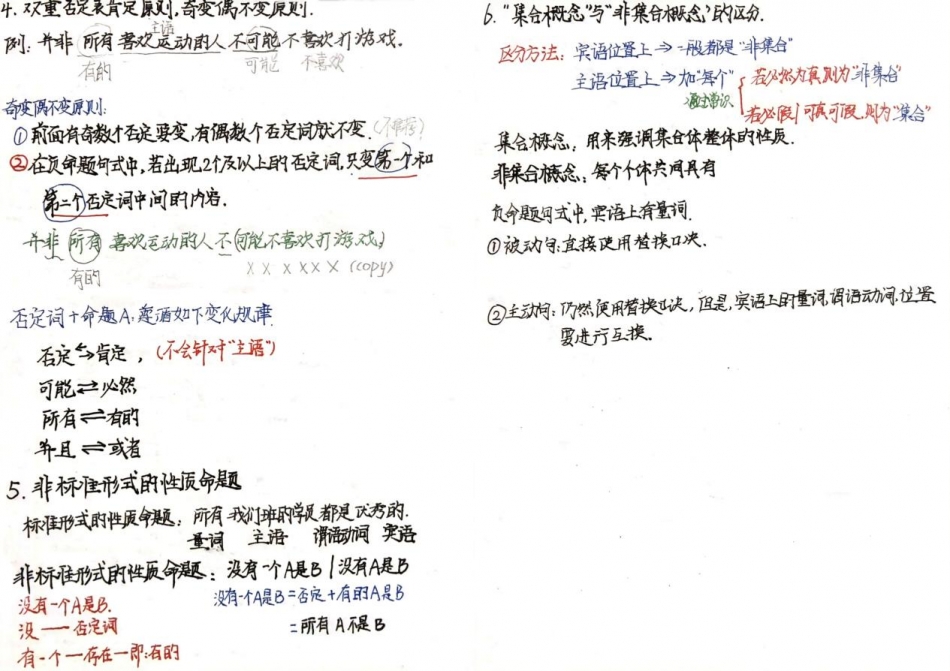 4. 双重否定表肯定原则,奇变偶不变原则.
主语
例: 并非 所有 喜欢运动的人 不可能 不喜欢打游戏.
有的 可能 不喜欢
奇变偶不变原则:
① 前面有奇数个否定要变,有偶数个否定词放不变.
② 在负命题句式中,若出现2个及以上的否定词,只变第一个和
第二个否定词中间的内容.
并非 所有 喜欢运动的人 不(可能不喜欢打游戏)
有的 X X X X X X (copy)
否定词+命题A: 遵循如下变化规律.
否定⇆肯定, (不会针对"主语")
可能⇌必然
所有⇌有的
并且⇌或者
5. 非标准形式的性质命题
标准形式的性质命题: 所有 我们班的学员都是优秀的.
量词 主语 谓语动词 宾语
非标准形式的性质命题: 没有一个A是B / 没有A是B
没有一个A是B. 没有一个A是B=否定+有的A是B
没 — 否定词 =所有A不是B
有一个—存在一即:有的
6. "集合概念"与"非集合概念"的区分.
区分方法: 宾语位置上→一般都是"非集合"
主语位置上→加"每个" 若必然为真则为"非集合"
通过常识 若必假/可真可假,则为"集合"
集合概念: 用来强调集合体整体的性质.
非集合概念: 每个个体共同具有
负命题句式中,宾语上有量词.
① 被动句:直接使用替换口诀.
② 主动句: 仍然使用替换口诀, 但是,宾语上的量词,谓语动词,位置
要进行互换.